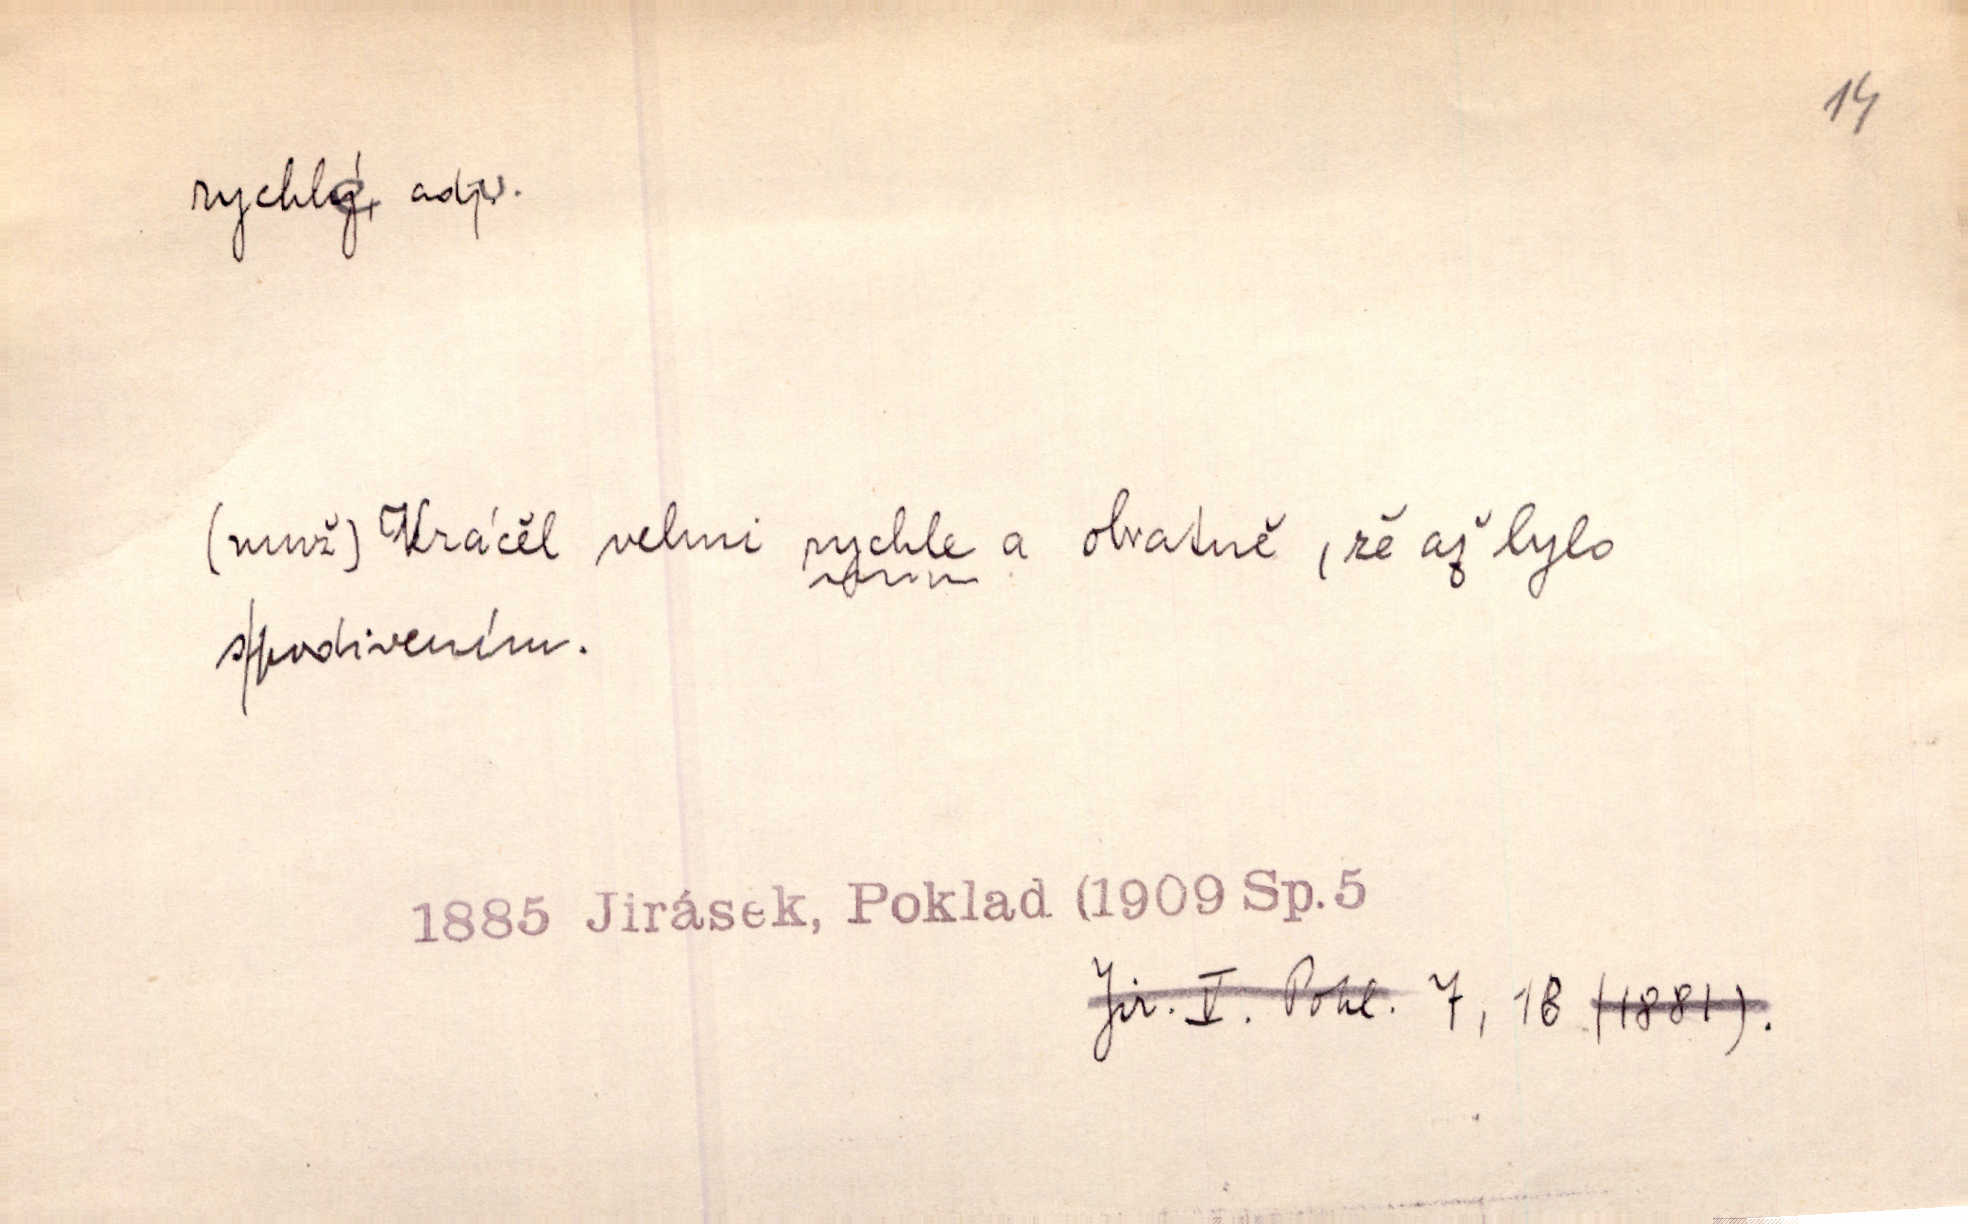 14
rychle, adv.
(muž) Kráčěl velmi rychle a obratně, žě až bylo
s podivením.
1885 Jirásek, Poklad (1909 Sp. 5
Jir. V. Pokl. 7, 18 (1881).